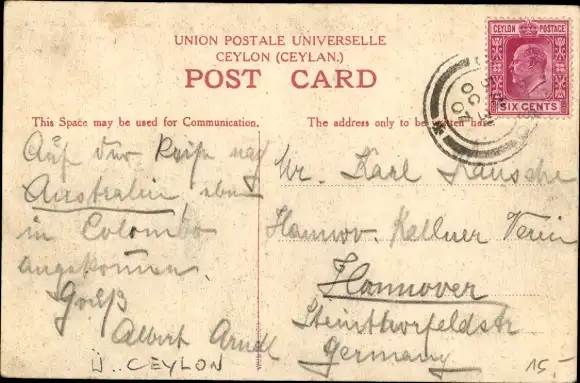 UNION POSTALE UNIVERSELLE
CEYLON (CEYLAN.)
POST CARD
CEYLON POSTAGE
SIX CENTS
This Space may be used for Communication.
The address only to be written
Auf der Reise nach
Australien, eben
in Colombo
angekommen.
Gruß
Albert
U. CEYLON
Mr. Karl
Hannov. Kellner Verein
Hannover
Steinthorfeldstr
Germany
15,-